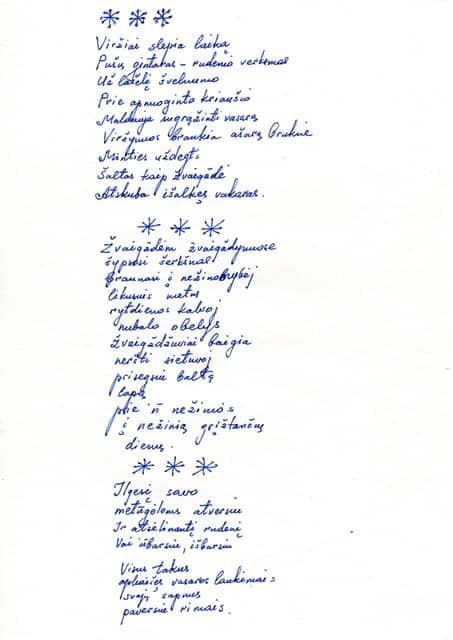 * * *
Viržiai slepia laiką
Pušų gintaras – rudenio verksmas
Už lašelį švelnumo
Prie apmūginto kriaušio
Maldauja sugrąžinti vasarą
Viržynuos braukia ašarą bruknė
Minties uždegti
Šaltas kaip žvaigždė
Atskuba išalkęs vakaras.
* * *
Žvaigždėm žvaigždynuose
šypsosi šerkšnas
Braunasi į nežinomybėj
likusius metus
rytdienos kalvoj
nubalo obelys
žvaigždžuviai baigia
neršti sietuvoj
prisegsiu baltą
lapą
prie iš nežinios
į nežinią grįžtančių
dienų.
* * *
Ilgesį savo
metagėlėms atversiu
Ir atsėlinantį rudenį
Vai išbarsiu, išbarsiu
Visus takus
apkaišęs vasaros laukimais
svajų sapnus
paversiu rimais.